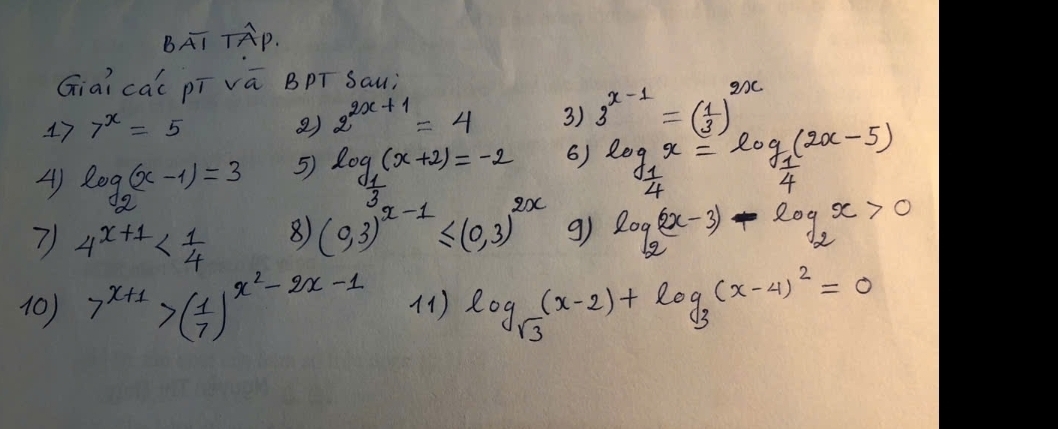 BÀI TẬP.
Giải các pT và BPT sau:
1) 7^x = 5 2) 2^{2x+1} = 4 3) 3^{x-1} = (1/3)^{2x}
4) log_2(x-1) = 3 5) log_{1/3}(x+2) = -2 6) log_{1/4} x = log_{1/4}(2x-5)
7) 4^{x+1} < 1/4 8) (0,3)^{x-1} ≤ (0,3)^{2x} 9) log_2(2x-3) - log_2 x > 0
10) 7^{x+1} > (1/7)^{x^2-2x-1} 11) log_{√3}(x-2) + log_3(x-4)^2 = 0